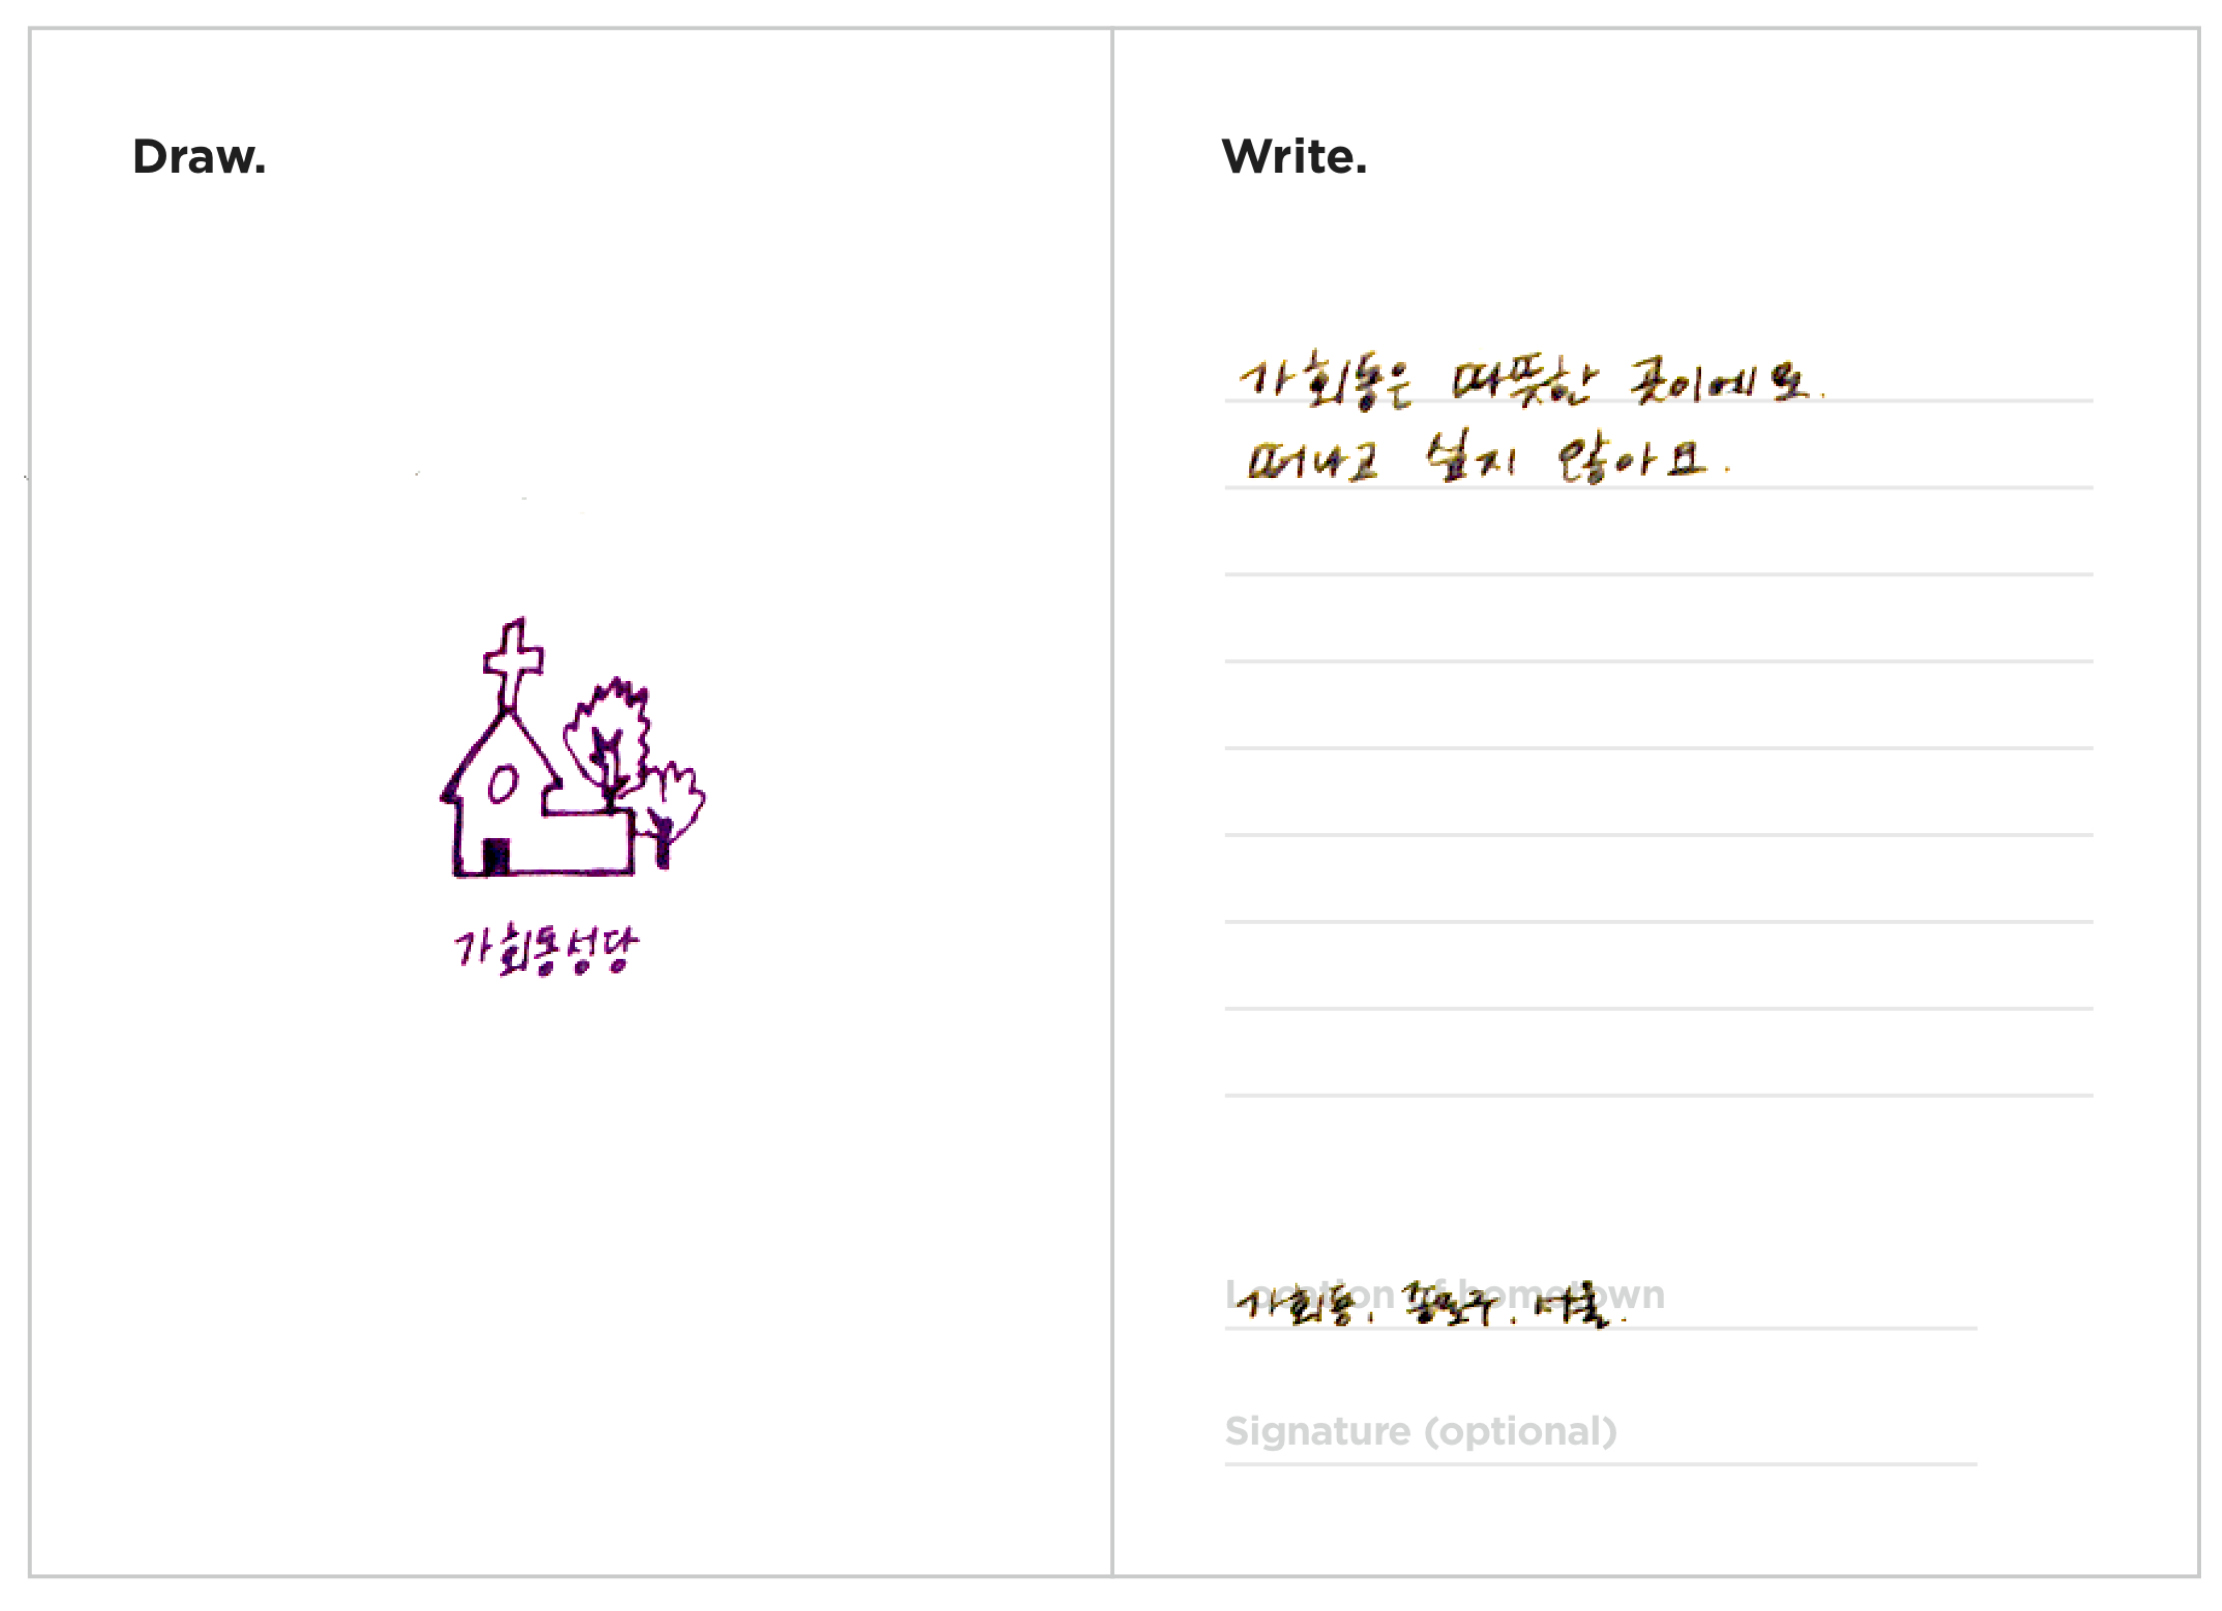 Draw.
가회동성당
Write.
가회동은 따뜻한 곳이에요.
떠나고 싶지 않아요.
Location of hometown
가회동, 종로구, 서울.
Signature (optional)